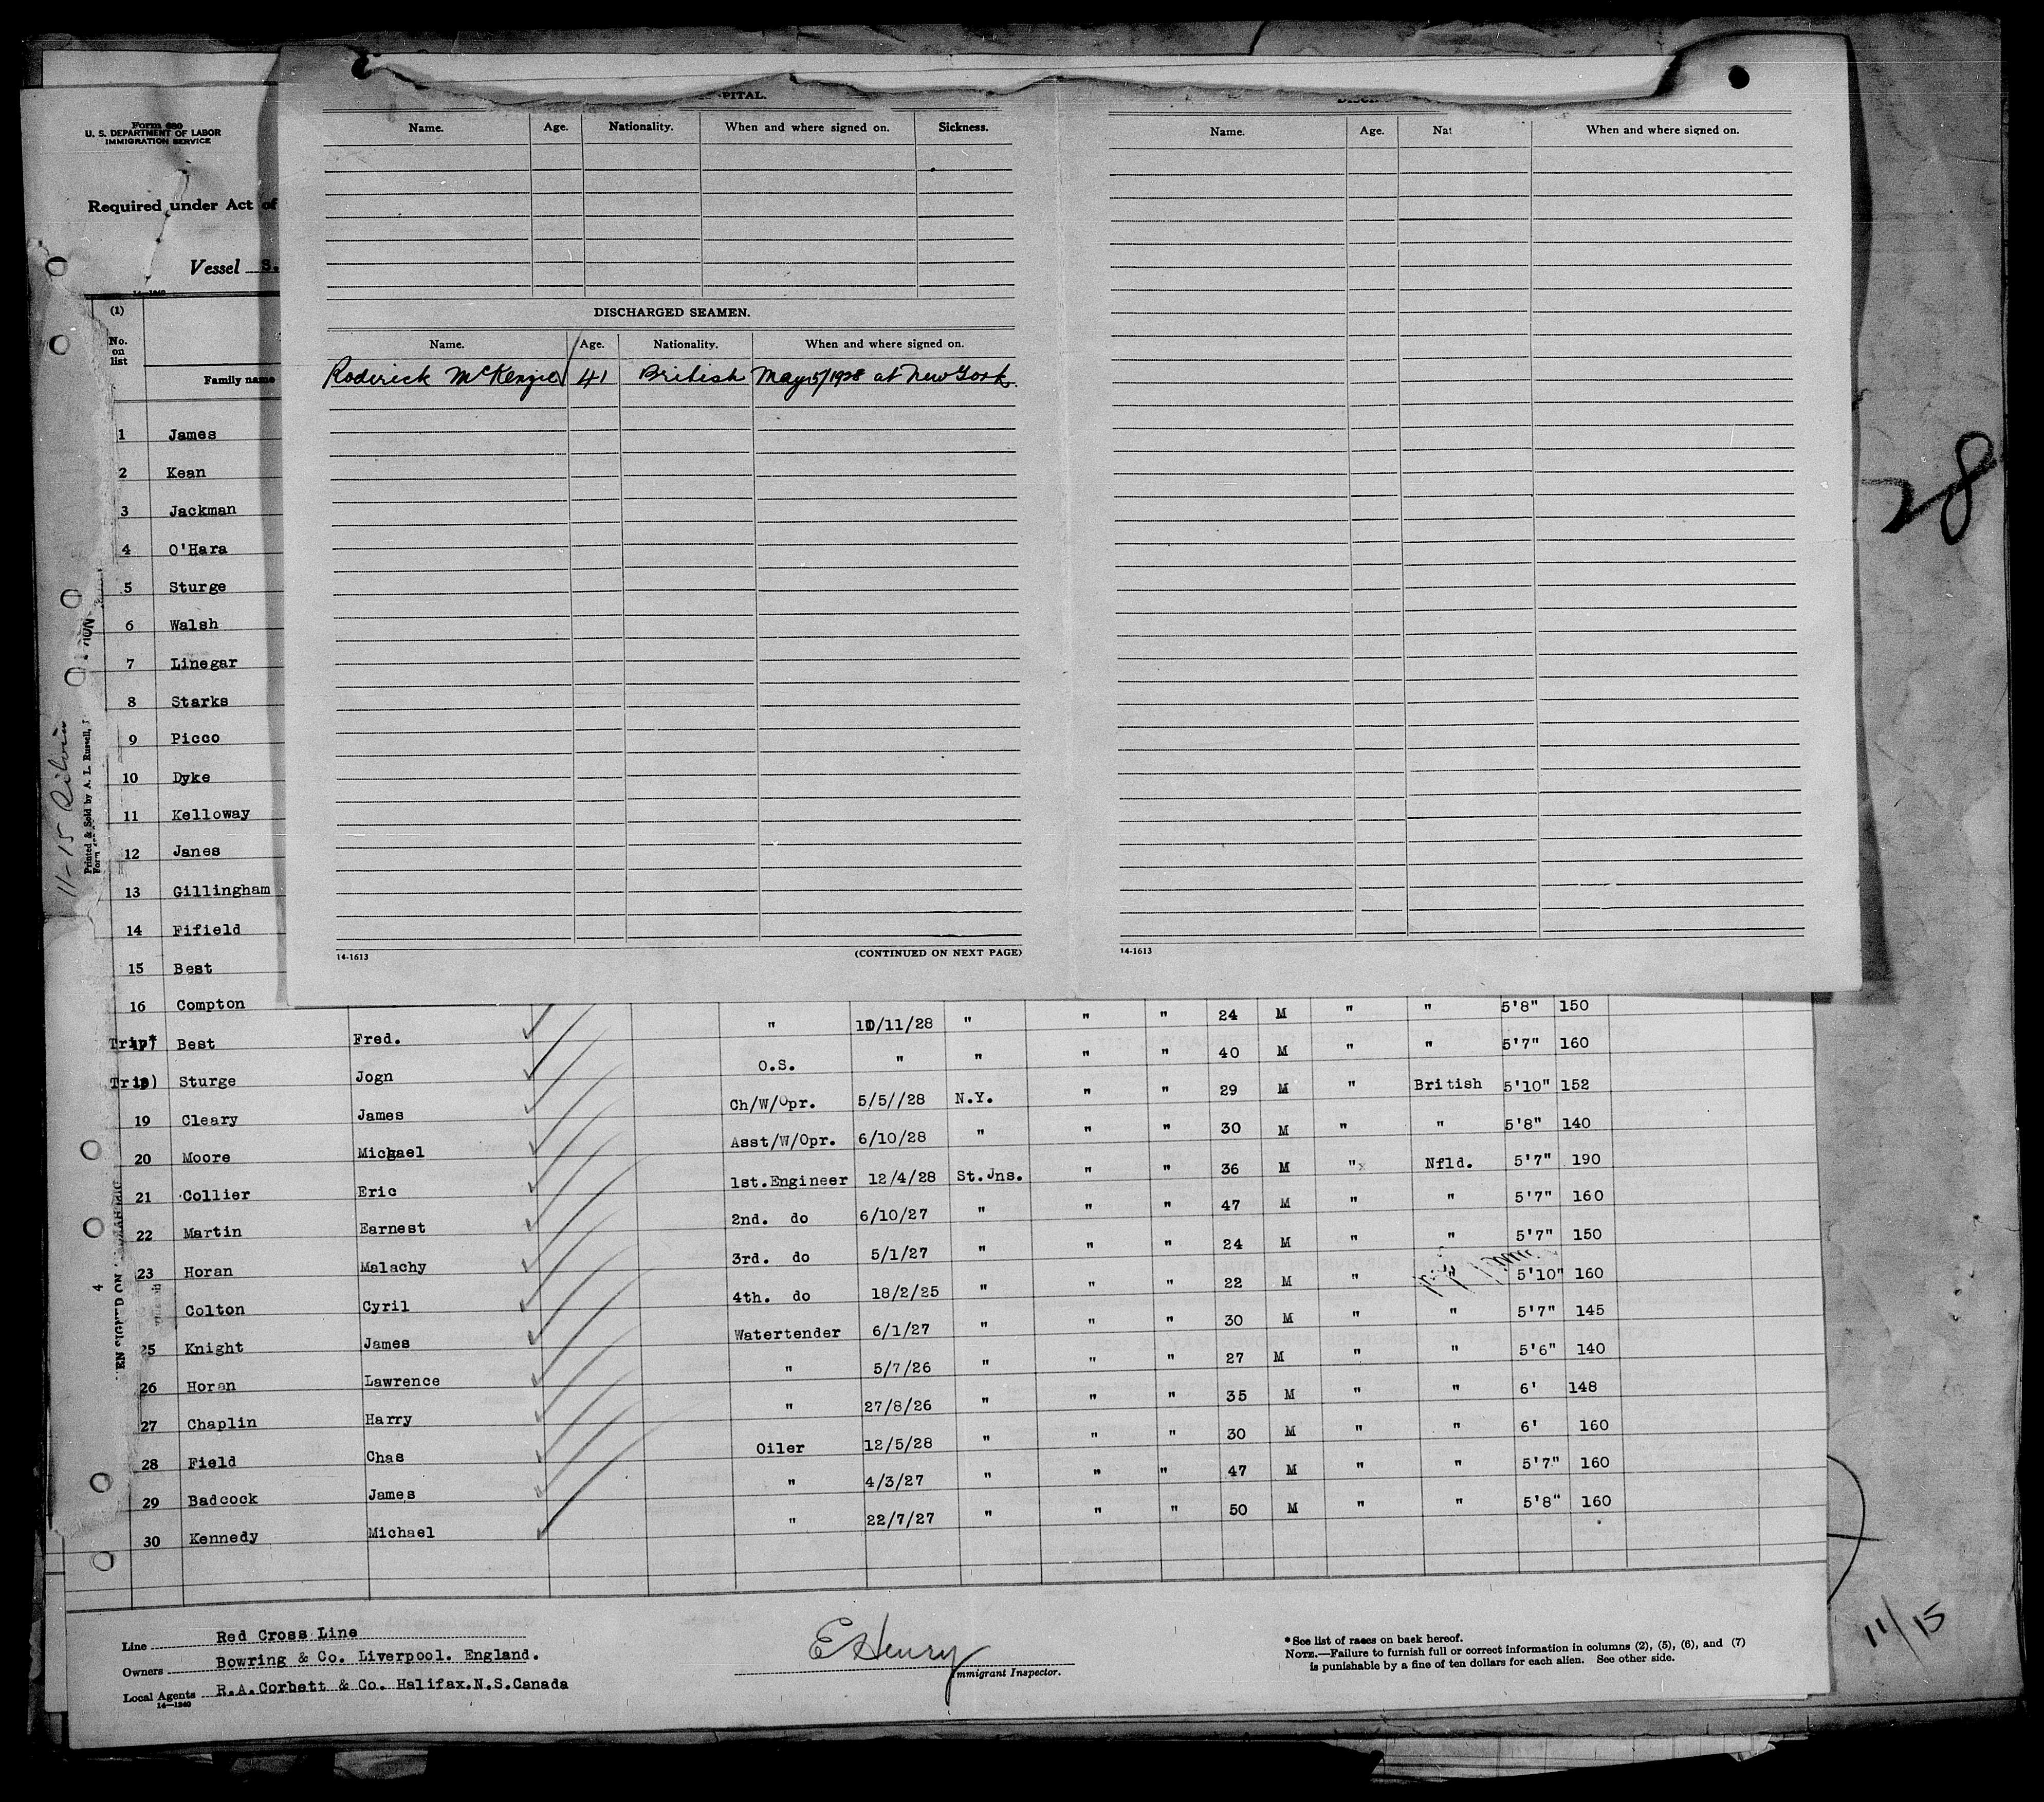 Form 680
U. S. DEPARTMENT OF LABOR
IMMIGRATION SERVICE
Required under Act of
Vessel S.
14-1240
(1)
No. on list
Family name
PITAL.
Name. Age. Nationality. When and where signed on. Sickness.
DISCHARGED SEAMEN.
Name. Age. Nationality. When and where signed on.
Roderick McKenzie 41 British May 15/1928 at New York.
14-1613 (CONTINUED ON NEXT PAGE)
Name. Age. Nat When and where signed on.
14-1613
28
1 James
2 Kean
3 Jackman
4 O'Hara
5 Sturge
6 Walsh
7 Linegar
8 Starks
9 Picco
10 Dyke
11 Kelloway
12 Janes
13 Gillingham
14 Fifield
15 Best
16 Compton " " 24 M " " 5'8" 150
Trip* 17) Best Fred. " 10/11/28 " " " 40 M " " 5'7" 160
Trip) Sturge Jogn O.S. " " " " 29 M " British 5'10" 152
19 Cleary James Ch/W/Opr. 5/5//28 N.Y. " " 30 M " " 5'8" 140
20 Moore Michael Asst/W/Opr. 6/10/28 " " " 36 M " Nfld. 5'7" 190
21 Collier Eric 1st.Engineer 12/4/28 St.Jns. " " 47 M " " 5'7" 160
22 Martin Earnest 2nd. do 6/10/27 " " " 24 M " " 5'7" 150
23 Horan Malachy 3rd. do 5/1/27 " " " 22 M " " 5'10" 160
Colton Cyril 4th. do 18/2/25 " " " 30 M " " 5'7" 145
25 Knight James Watertender 6/1/27 " " " 27 M " " 5'6" 140
26 Horan Lawrence " 5/7/26 " " " 35 M " " 6' 148
27 Chaplin Harry " 27/8/26 " " " 30 M " " 6' 160
28 Field Chas Oiler 12/5/28 " " " 47 M " " 5'7" 160
29 Badcock James " 4/3/27 " " " 50 M " " 5'8" 160
30 Kennedy Michael " 22/7/27 "
Line Red Cross Line
Owners Bowring & Co. Liverpool. England.
Local Agents R.A.Corbett & Co. Halifax.N.S.Canada
14-1240
E Henry
Immigrant Inspector.
* See list of races on back hereof.
NOTE.—Failure to furnish full or correct information in columns (2), (5), (6), and (7)
is punishable by a fine of ten dollars for each alien. See other side.
11/15
11-15
Printed & Sold by A. L. Russell,
4